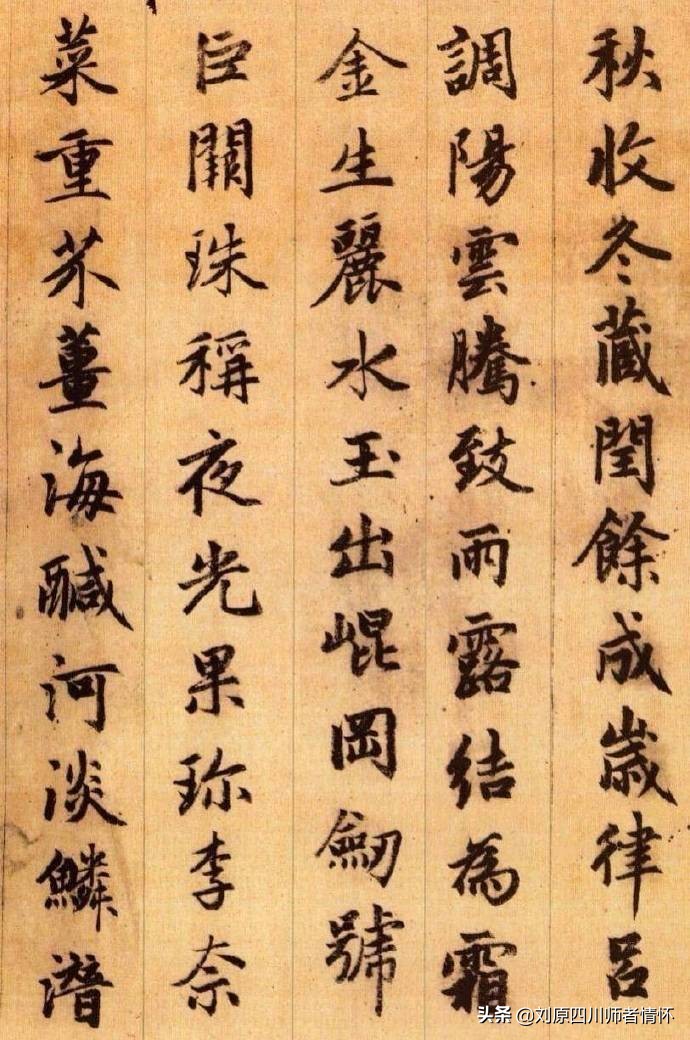 秋收冬蔵閏餘成歲律呂
調陽雲騰致雨露結為霜
金生麗水玉出崐岡劒號
巨闕珠稱夜光果珎李柰
菜重芥薑海醎河淡鱗潛
头条 @刘原四川师者情怀